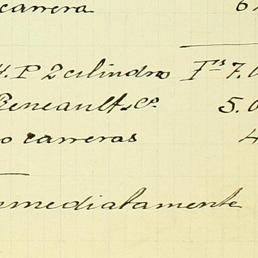 carrera 6
H.P 2 cilindro Fns 7.0
Reneault & Co. 5.0
o carreras 4
nmediatamente